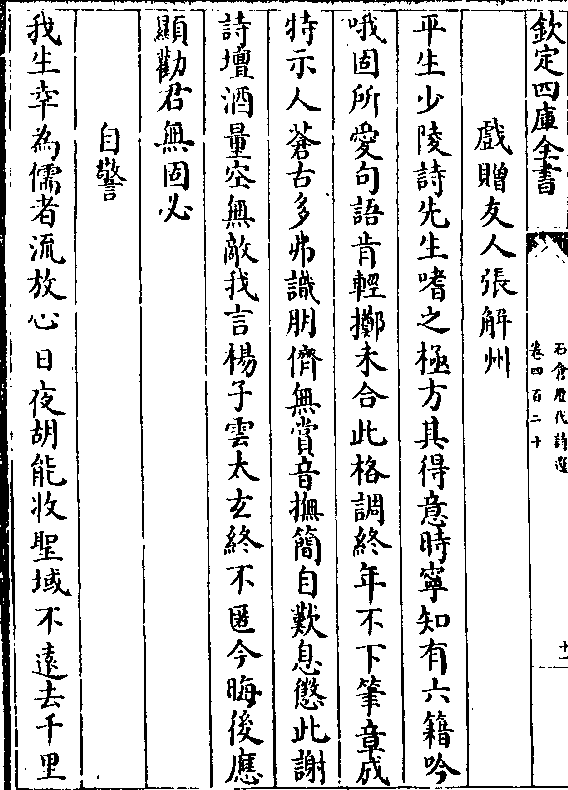 欽定四庫全書
石倉歷代詩選
卷四百二十
十一
戲贈友人張解州
平生少陵詩先生嗜之極方其得意時寧知有六籍吟
哦固所愛句語肯輕擲未合此格調終年不下筆章成
特示人蒼古多弗識朋儕無賞音撫簡自歎息懲此謝
詩壇酒量空無敵我言楊子雲太玄終不匿今晦後應
顯勸君無固必
自警
我生幸為儒者流放心日夜胡能收聖域不遠去千里